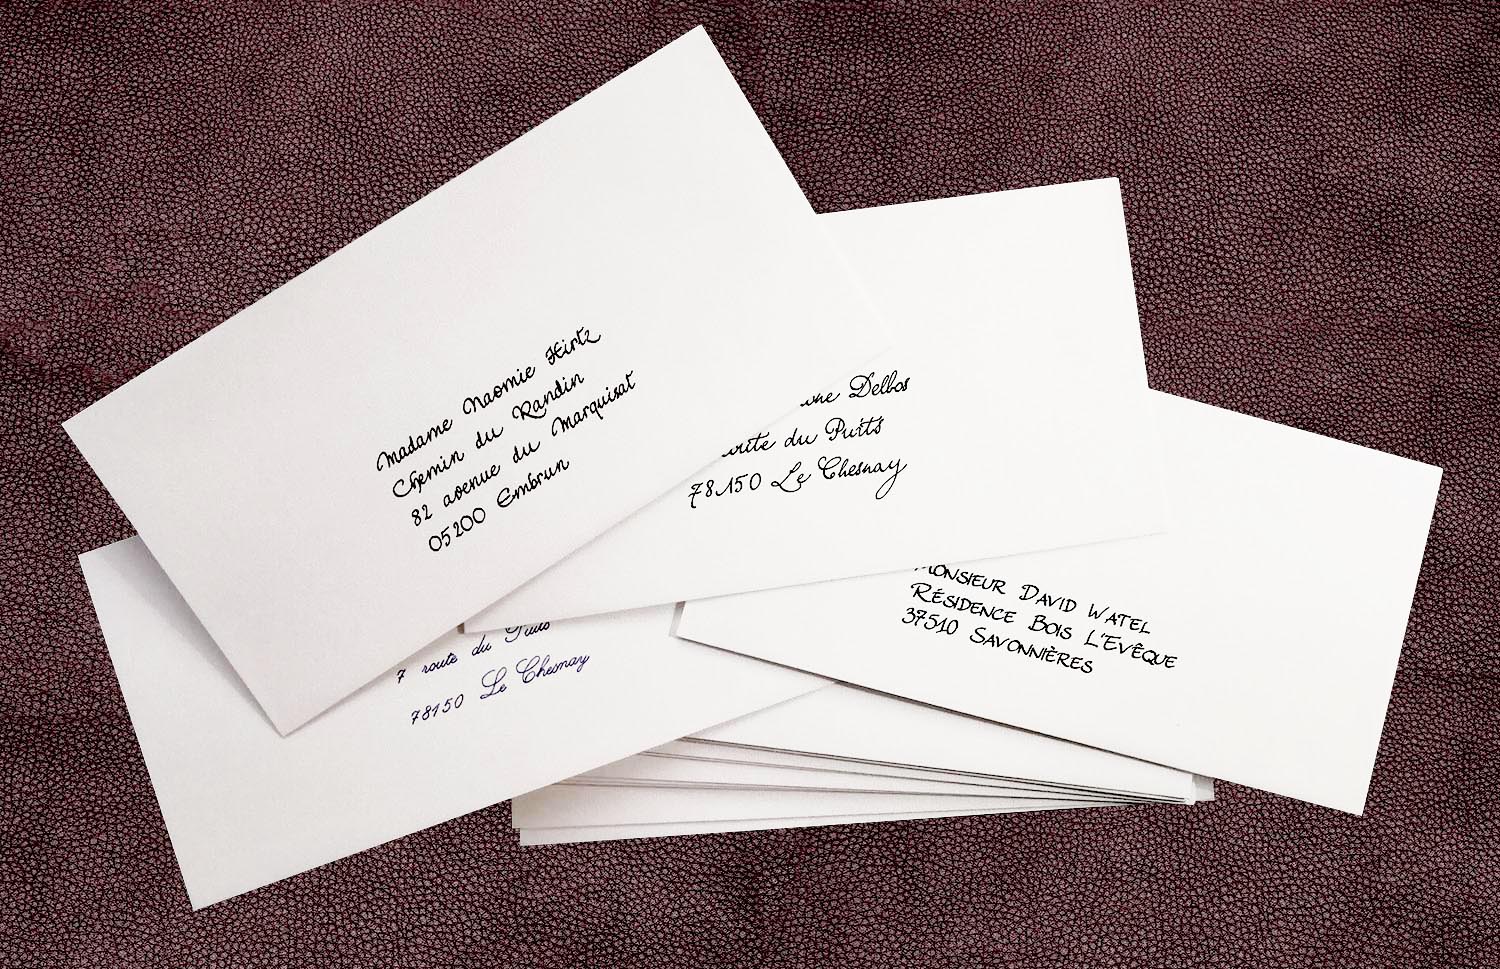 Madame Naomie Hirtz
Chemin du Randin
82 avenue du Marquisat
05200 Embrun
Delbos
route du Puits
78150 Le Chesnay
Monsieur David Watel
Résidence Bois L'Evêque
37510 Savonnières
7 route du Puits
78150 Le Chesnay